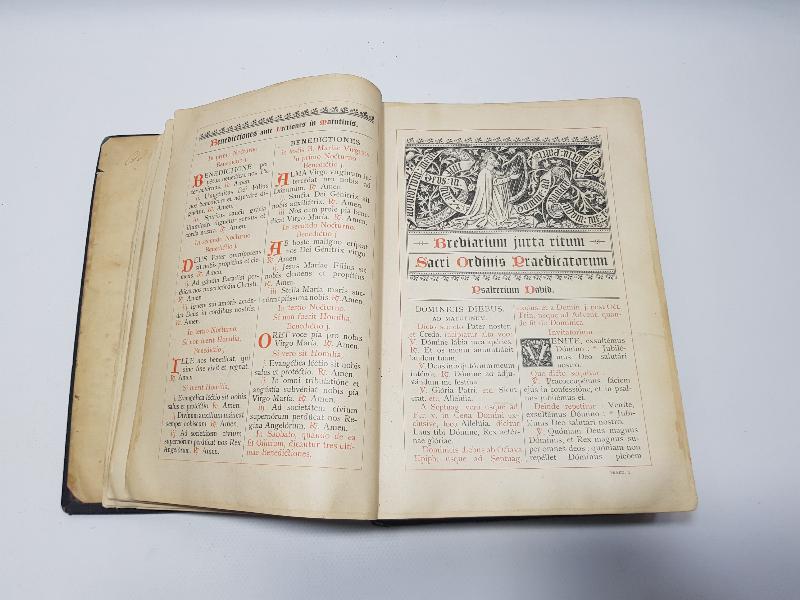 Benedictiones ante Lectiones in Matutinis.
In primo Nocturno
Benedictio j.
BENEDICTIONE per-
nos benedicere et adjuvare di-
gnetur. ℟. Amen.
iij. Spiritus sancti gratia
℟. Amen.
In secundo Nocturno
Benedictio j.
DEUS Pater omnipotens
sit nobis propitius et cle-
mens. ℟. Amen.
℟. Amen
dat Deus in cordibus nostris.
℟. Amen.
In tertio Nocturno.
Si non fuerit Homilia,
Benedictio j.
ILLE nos benedicat, qui
sine fine vivit et regnat.
℟. Amen.
Si fuerit Homilia,
j. Evangélica léctio sit nobis
salus et protéctio. ℟. Amen.
ij. Divínum auxílium máneat
semper nobíscum. ℟. Amen.
iij. Ad societátem cívium
supernórum perdúcat nos Rex
Angelórum. ℟. Amen.
BENEDICTIONES
in festis B. Mariæ Virginis
In primo Nocturno
Benedictio j.
ALMA Virgo vírginum in-
tercédat pro nobis ad
Dóminum. ℟. Amen.
ij. Sancta Dei Génitrix sit
nobis auxiliátrix. ℟. Amen.
iij. Nos cum prole pia bene-
dícat Virgo María. ℟. Amen.
In secundo Nocturno.
Benedictio j.
AB hoste maligno erípiat
nos Dei Génitrix virgo
℟. Amen.
ij. Jesus Maríæ Fílius sit
nobis clemens et propítius
℟. Amen.
iij. Stella María maris suc-
cúrre piíssima nobis. ℟. Amen.
In tertio Nocturno.
Si non fuerit Homilia,
Benedictio j.
ORET voce pia pro nobis
Virgo María. ℟. Amen.
Si vero sit Homilia,
j. Evangélica léctio sit nobis
salus et protéctio. ℟. Amen.
ij. In omni tribulatióne et
angústia subvéniat nobis pia
Virgo María. ℟. Amen.
iij. Ad societátem cívium
supernórum perdúcat nos Re-
gína Angelórum. ℟. Amen.
In Sabbato, quando de ea
fit Officium, dicuntur tres ulti-
mæ Benedictiones.
Breviarium juxta ritum
Sacri Ordinis Praedicatorum
Psalterium David.
DOMINICIS DIEBUS.
AD MATUTINUM.
Dicto secreto Pater noster,
et Credo, incipiatur clara voce,
℣. Dómine lábia mea apéries.
℟. Et os meum annuntiábit
laudem tuam.
℣. Deus in adjutórium meum
inténde. ℟. Dómine ad adju-
vándum me festína.
℣. Glória Patri, etc. Sicut
erat, etc. Allelúia.
A Septuag. vero usque ad
Fer. v. in Cena Domini ex-
clusive, loco Allelúia, dicitur
Laus tibi Dómine, Rex ætér-
næ glóriæ.
Dominicis diebus ab Octava
Epiph. usque ad Septuag.
exclus. et a Domin. j. post Oct.
Trin. usque ad Advent. quan-
do fit de Dominica
Invitatorium.
VENITE, exsultémus
Dómino : * Jubilé-
mus Deo salutári
nostro.
Quo dicto, sequitur
℣. Præoccupémus fáciem
ejus in confessióne, et in psal-
mis jubilémus ei.
Deinde repetitur : Veníte,
exsultémus Dómino : * Jubi-
lémus Deo salutári nostro.
℣. Quóniam Deus magnus
Dóminus, et Rex magnus su-
per omnes deos ; quóniam non
repéllet Dóminus plebem